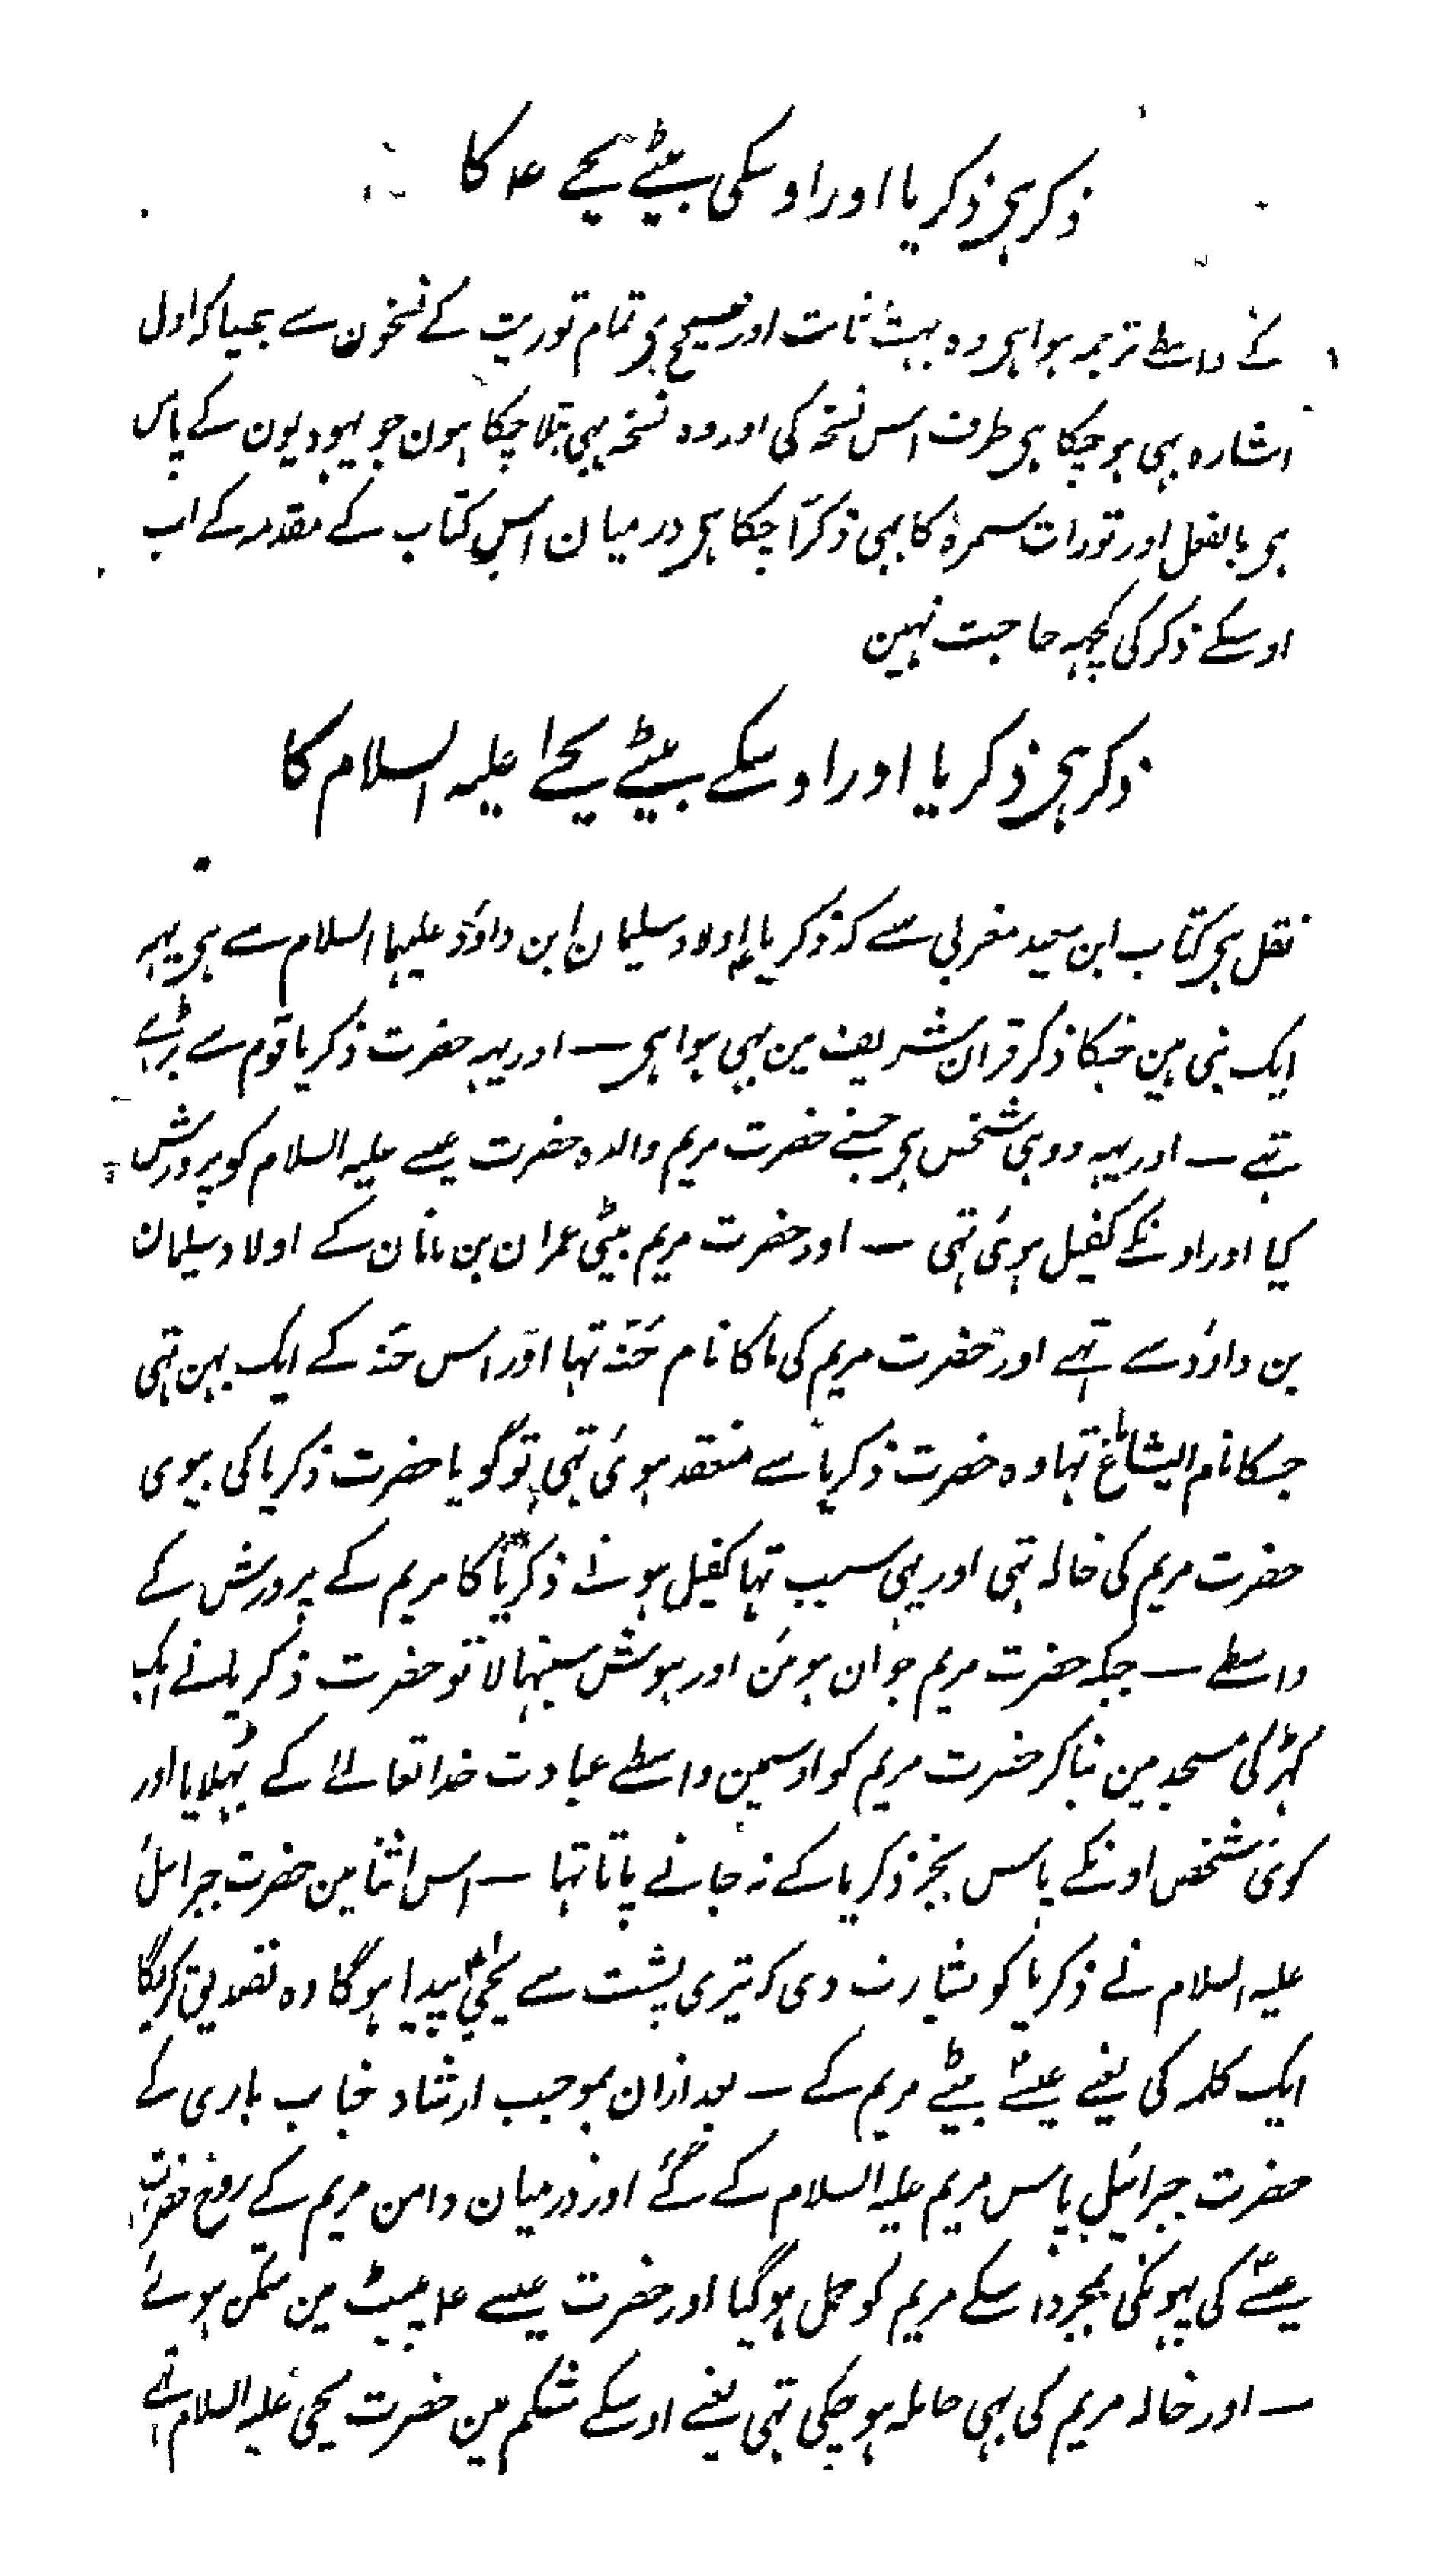 ذکر ہی ذکریا اور اوسکی بیٹے یحیے ۴ کا
کے واسطے ترجمہ ہوا ہی وہ بہت ثابت اور صحیح ہی تمام توریت کے نسخون سے جیسا کہ اول
اشارہ بہی ہو چکا ہی طرف اس نسخہ کی اور وہ نسخہ بہی بتلا چکا ہون جو یہودیون کے پاس
ہی بالفعل اور تورات سمرہ کا بہی ذکر آ چکا ہی درمیان اس کتاب کے مقدمہ کے اب
اوسکے ذکر کی کچہہ حاجت نہین
ذکر ہی ذکریا اور اوسکے بیٹے یحیٰے علیہ السلام کا
نقل ہی کتاب ابن سعید مغربی سے کہ ذکریا۴ اولاد سلیمان ابن داؤد علیہما السلام سے ہی یہہ
ایک نبی ہین جنکا ذکر قران شریف مین بہی ہوا ہی — اور یہہ حضرت ذکریا قوم سے بڑہے
تہے — اور یہہ وہ ہی شخص ہی جسنے حضرت مریم والدہ حضرت عیسے علیہ السلام کو پرورش
کیا اور اونکے کفیل ہوئی تہی — اور حضرت مریم بیٹی عمران بن ماثان کے اولاد سلیمان
بن داؤد سے تہے اور حضرت مریم کی ما کا نام حَنّہ تہا اور اس حنہ کے ایک بہن تہی
جسکا نام الیشاع تہا وہ حضرت ذکریا سے منعقد ہوئی تہی تو گویا حضرت ذکریا کی بیوی
حضرت مریم کی خالہ تہی اور یہی سبب تہا کفیل ہونے ذکریا کا مریم کے پرورش کے
واسطے — جبکہ حضرت مریم جوان ہوئین اور ہوش سنبہالا تو حضرت ذکریا نے ایک
کہڑکی مسجد مین بنا کر حضرت مریم کو اوسمین واسطے عبادت خدا تعالےٰ کے بٹہلایا اور
کوئی شخص اونکے پاس بجز ذکریا کے نہ جانے پاتا تہا — اس اثنا مین حضرت جبرائیل
علیہ السلام نے ذکریا کو بشارت دی کہ تیری پشت سے یحییٰ۴ پیدا ہوگا وہ تصدیق کریگا
ایک کلمہ کی یعنے عیسے۴ بیٹے مریم کے — بعد ازان بموجب ارشاد جناب باری کے
حضرت جبرائیل پاس مریم علیہ السلام کے گئے اور درمیان دامن مریم کے روح حضرت
عیسے۴ کی پہونکی بمجرد اسکے مریم کو حمل ہوگیا اور حضرت عیسے ۴ پیٹ مین متمکن ہوئے
— اور خالہ مریم کی بہی حاملہ ہو چکی تہی یعنے اوسکے شکم مین حضرت یحیی علیہ السلام تہے